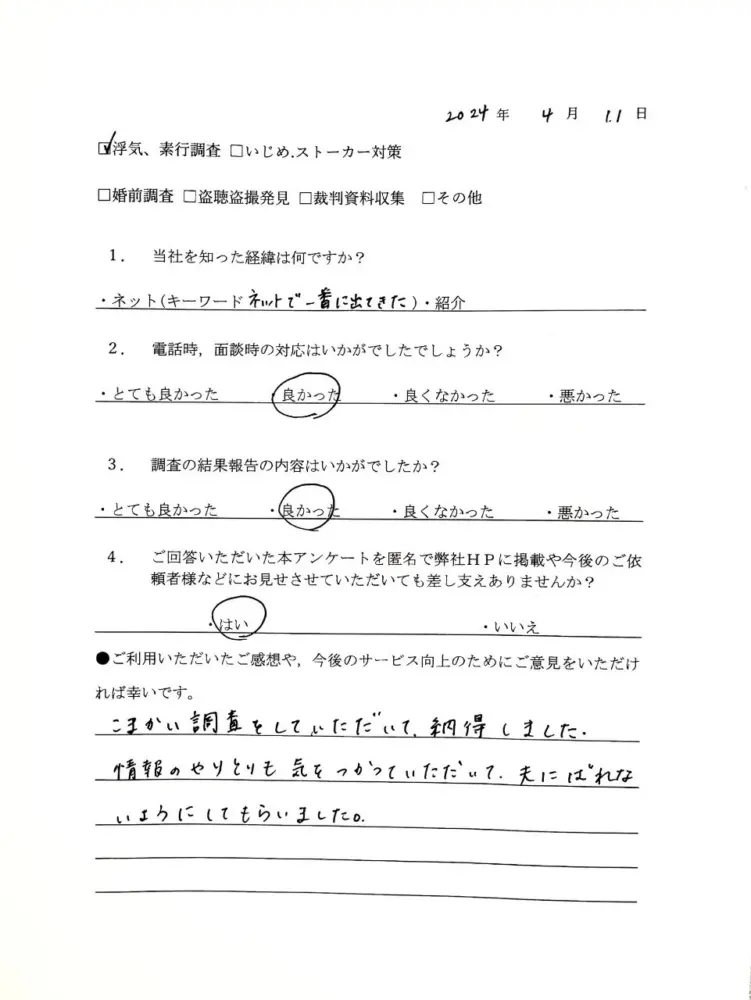 2024年 4月 11日
☑浮気、素行調査 □いじめ.ストーカー対策
□婚前調査 □盗聴盗撮発見 □裁判資料収集 □その他
1. 当社を知った経緯は何ですか？
・ネット(キーワード ネットで一番に出てきた)・紹介
2. 電話時，面談時の対応はいかがでしたでしょうか？
・とても良かった ・良かった ・良くなかった ・悪かった
3. 調査の結果報告の内容はいかがでしたか？
・とても良かった ・良かった ・良くなかった ・悪かった
4. ご回答いただいた本アンケートを匿名で弊社ＨＰに掲載や今後のご依
頼者様などにお見せさせていただいても差し支えありませんか？
・はい ・いいえ
●ご利用いただいたご感想や，今後のサービス向上のためにご意見をいただけ
れば幸いです。
こまかい調査をしていただいて、納得しました.
情報のやりとりも気をつかっていただいて、夫にばれな
いようにしてもらいました。